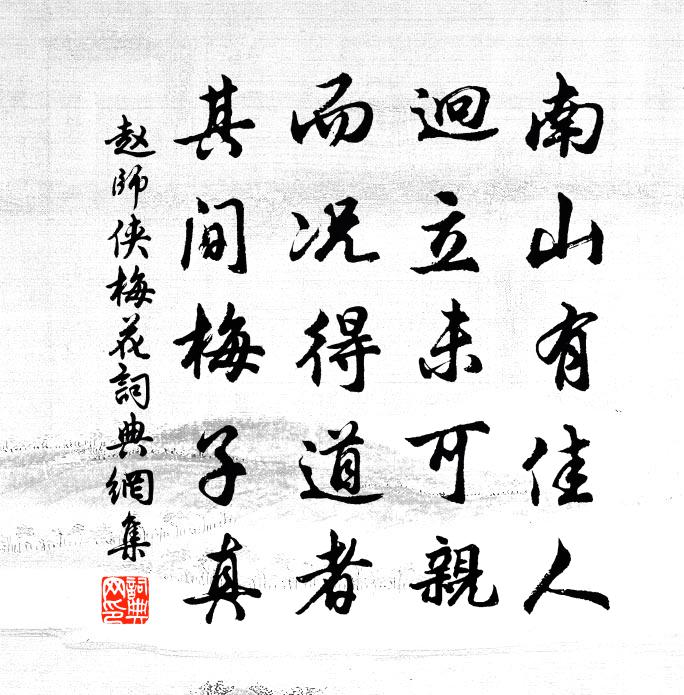 南山有佳人
迥立未可親
而况得道者
其間梅子真
赵師俠梅花詞典網集
詞典網印